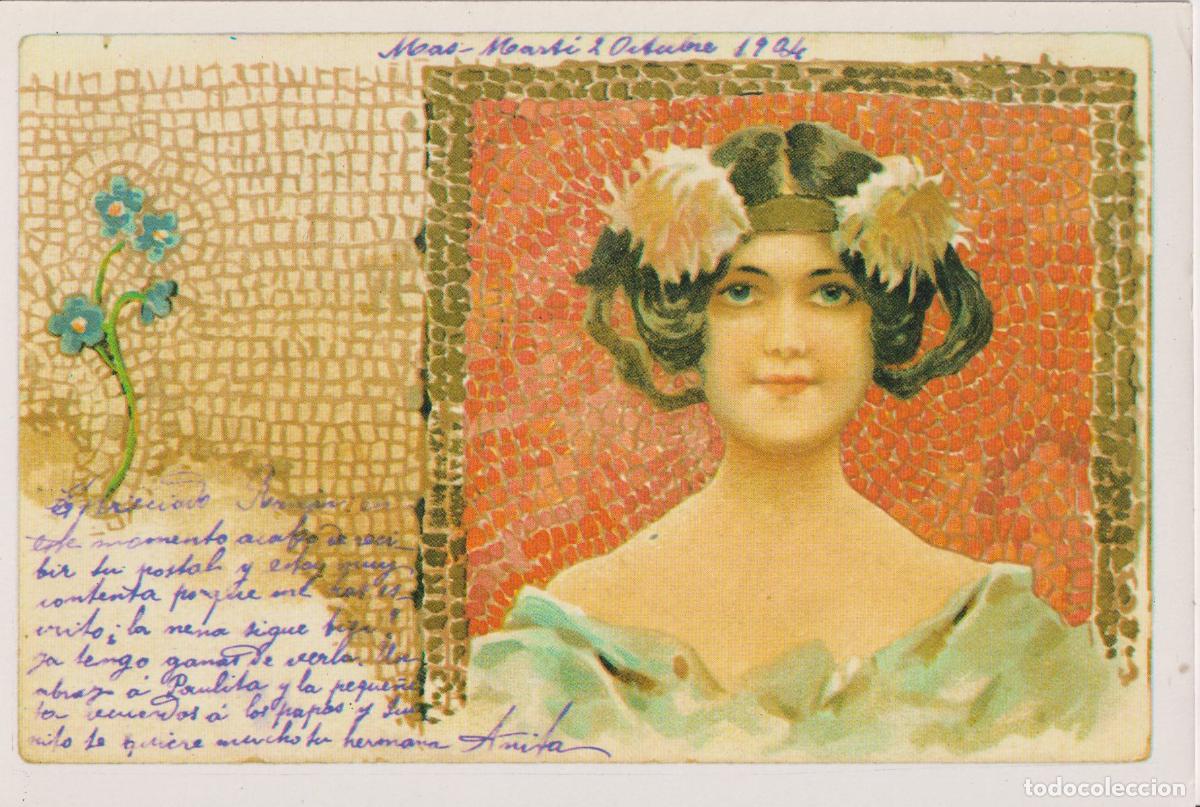 Mas-Martí 2 Octubre 1904
Apreciado Remigio: en
este momento acabo de reci-
bir tu postal y estoy muy
contenta porque me has es-
crito; la nena sigue bien?
ya tengo ganas de verla. Un
abrazo á Paulita y la pequeñi-
ta recuerdos á los papas y
te quiere mucho tu hermana Anita
todocoleccion